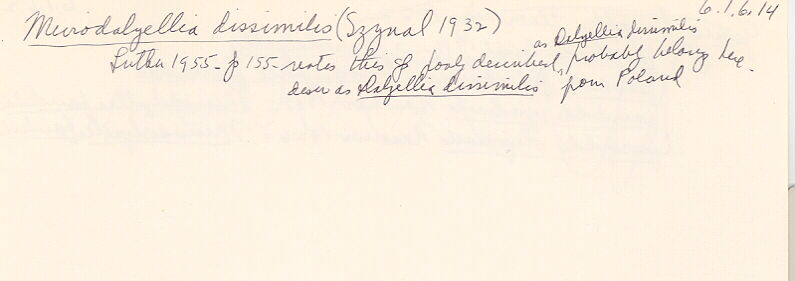 6.1.6.14
Microdalyellia dissimilis (Szynal 1932)
as Dalyellia dissimilis
Luther 1955 - p 155 - notes this sp poorly described, probably belongs here -
descr as Dalyellia dissimilis from Poland